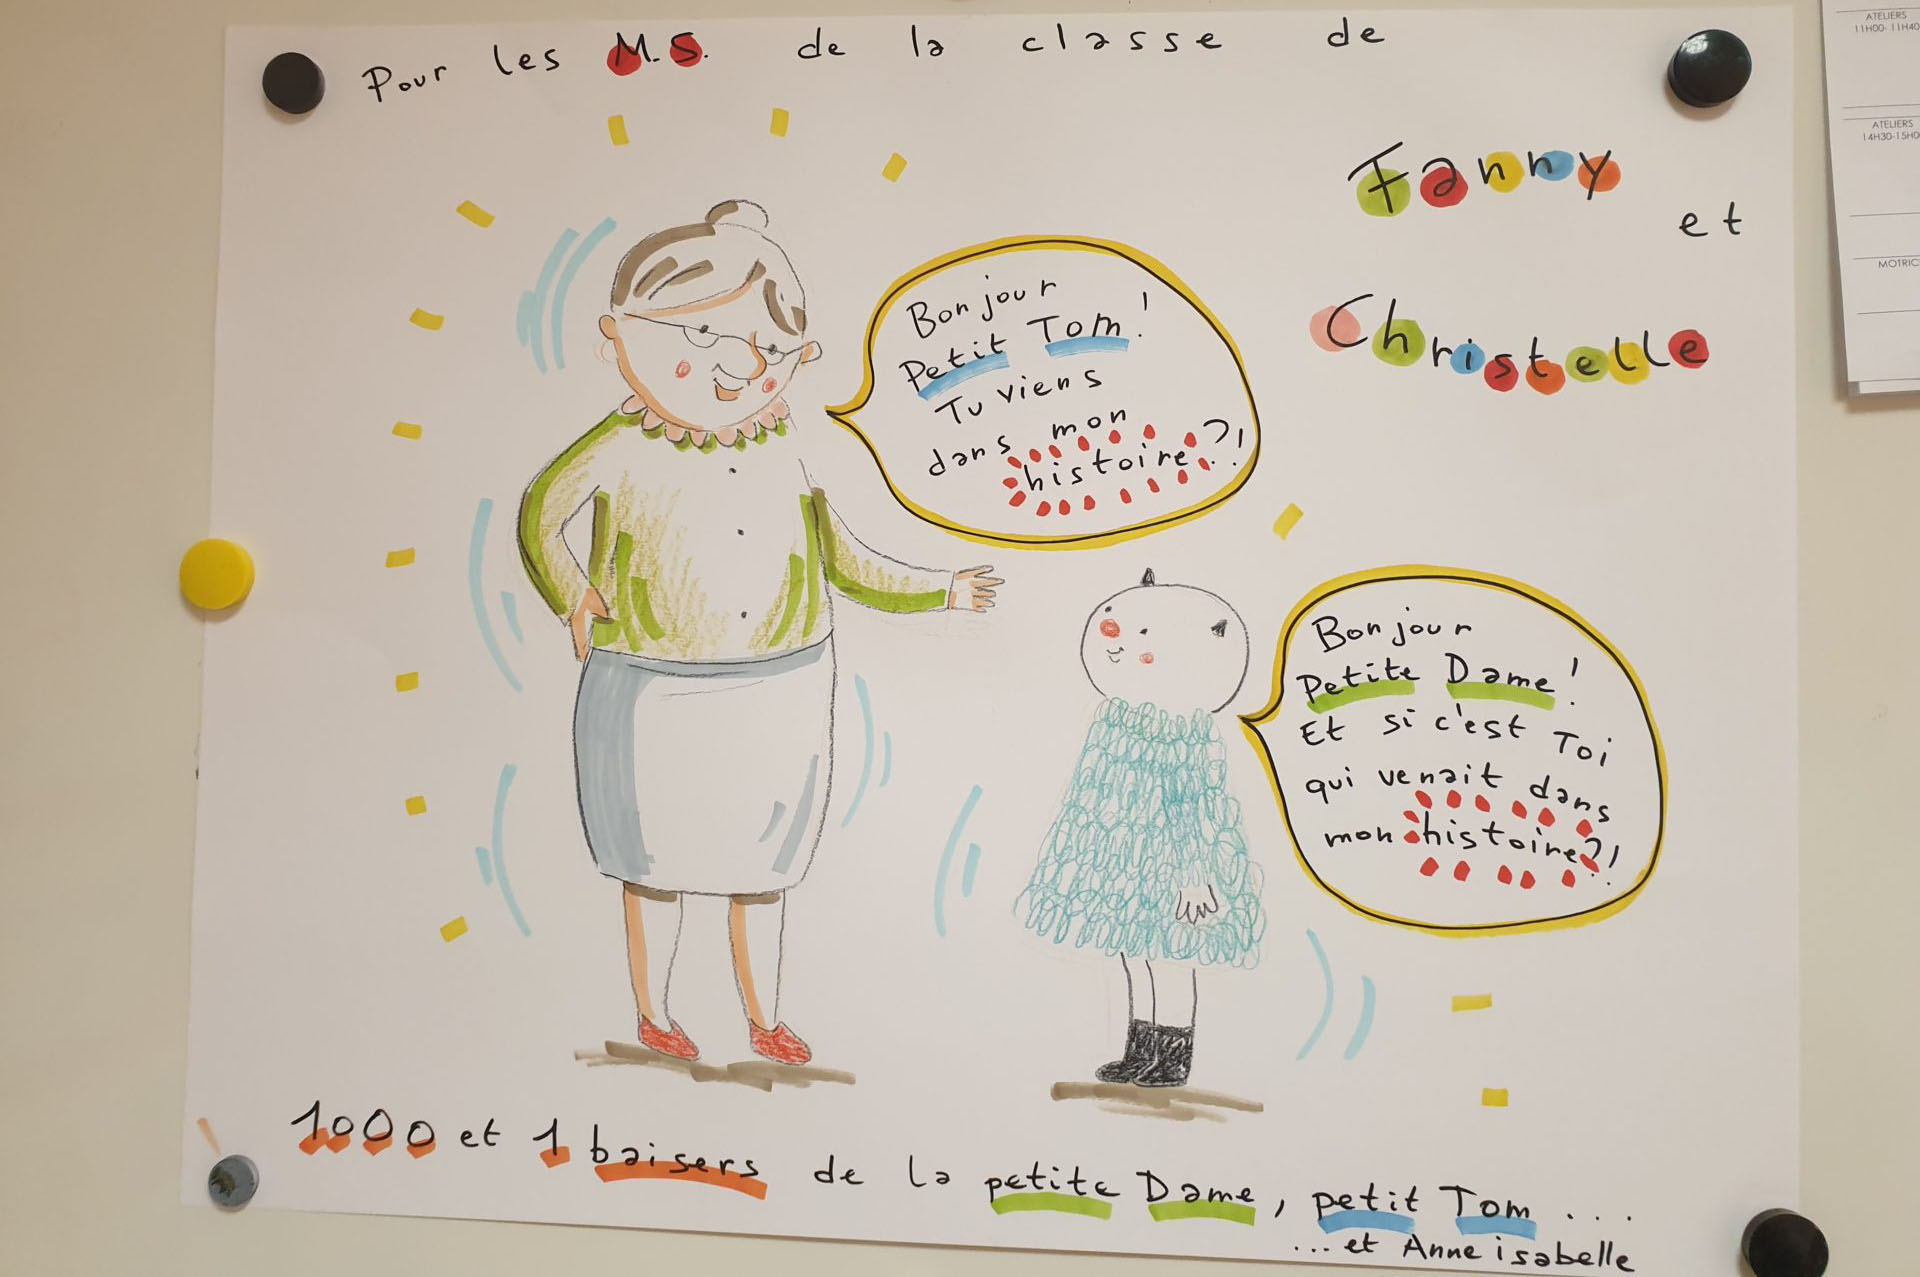 Pour les M.S. de la classe de
Fanny
et
Christelle
Bonjour
Petit Tom!
Tu viens
dans mon
histoire?!
Bonjour
Petite Dame!
Et si c'est Toi
qui venait dans
mon histoire?!
1000 et 1 baisers de la petite Dame, petit Tom ...
...et Anne isabelle
ATELIERS
11H00- 11H40
ATELIERS
14H30-15H0
MOTRIC